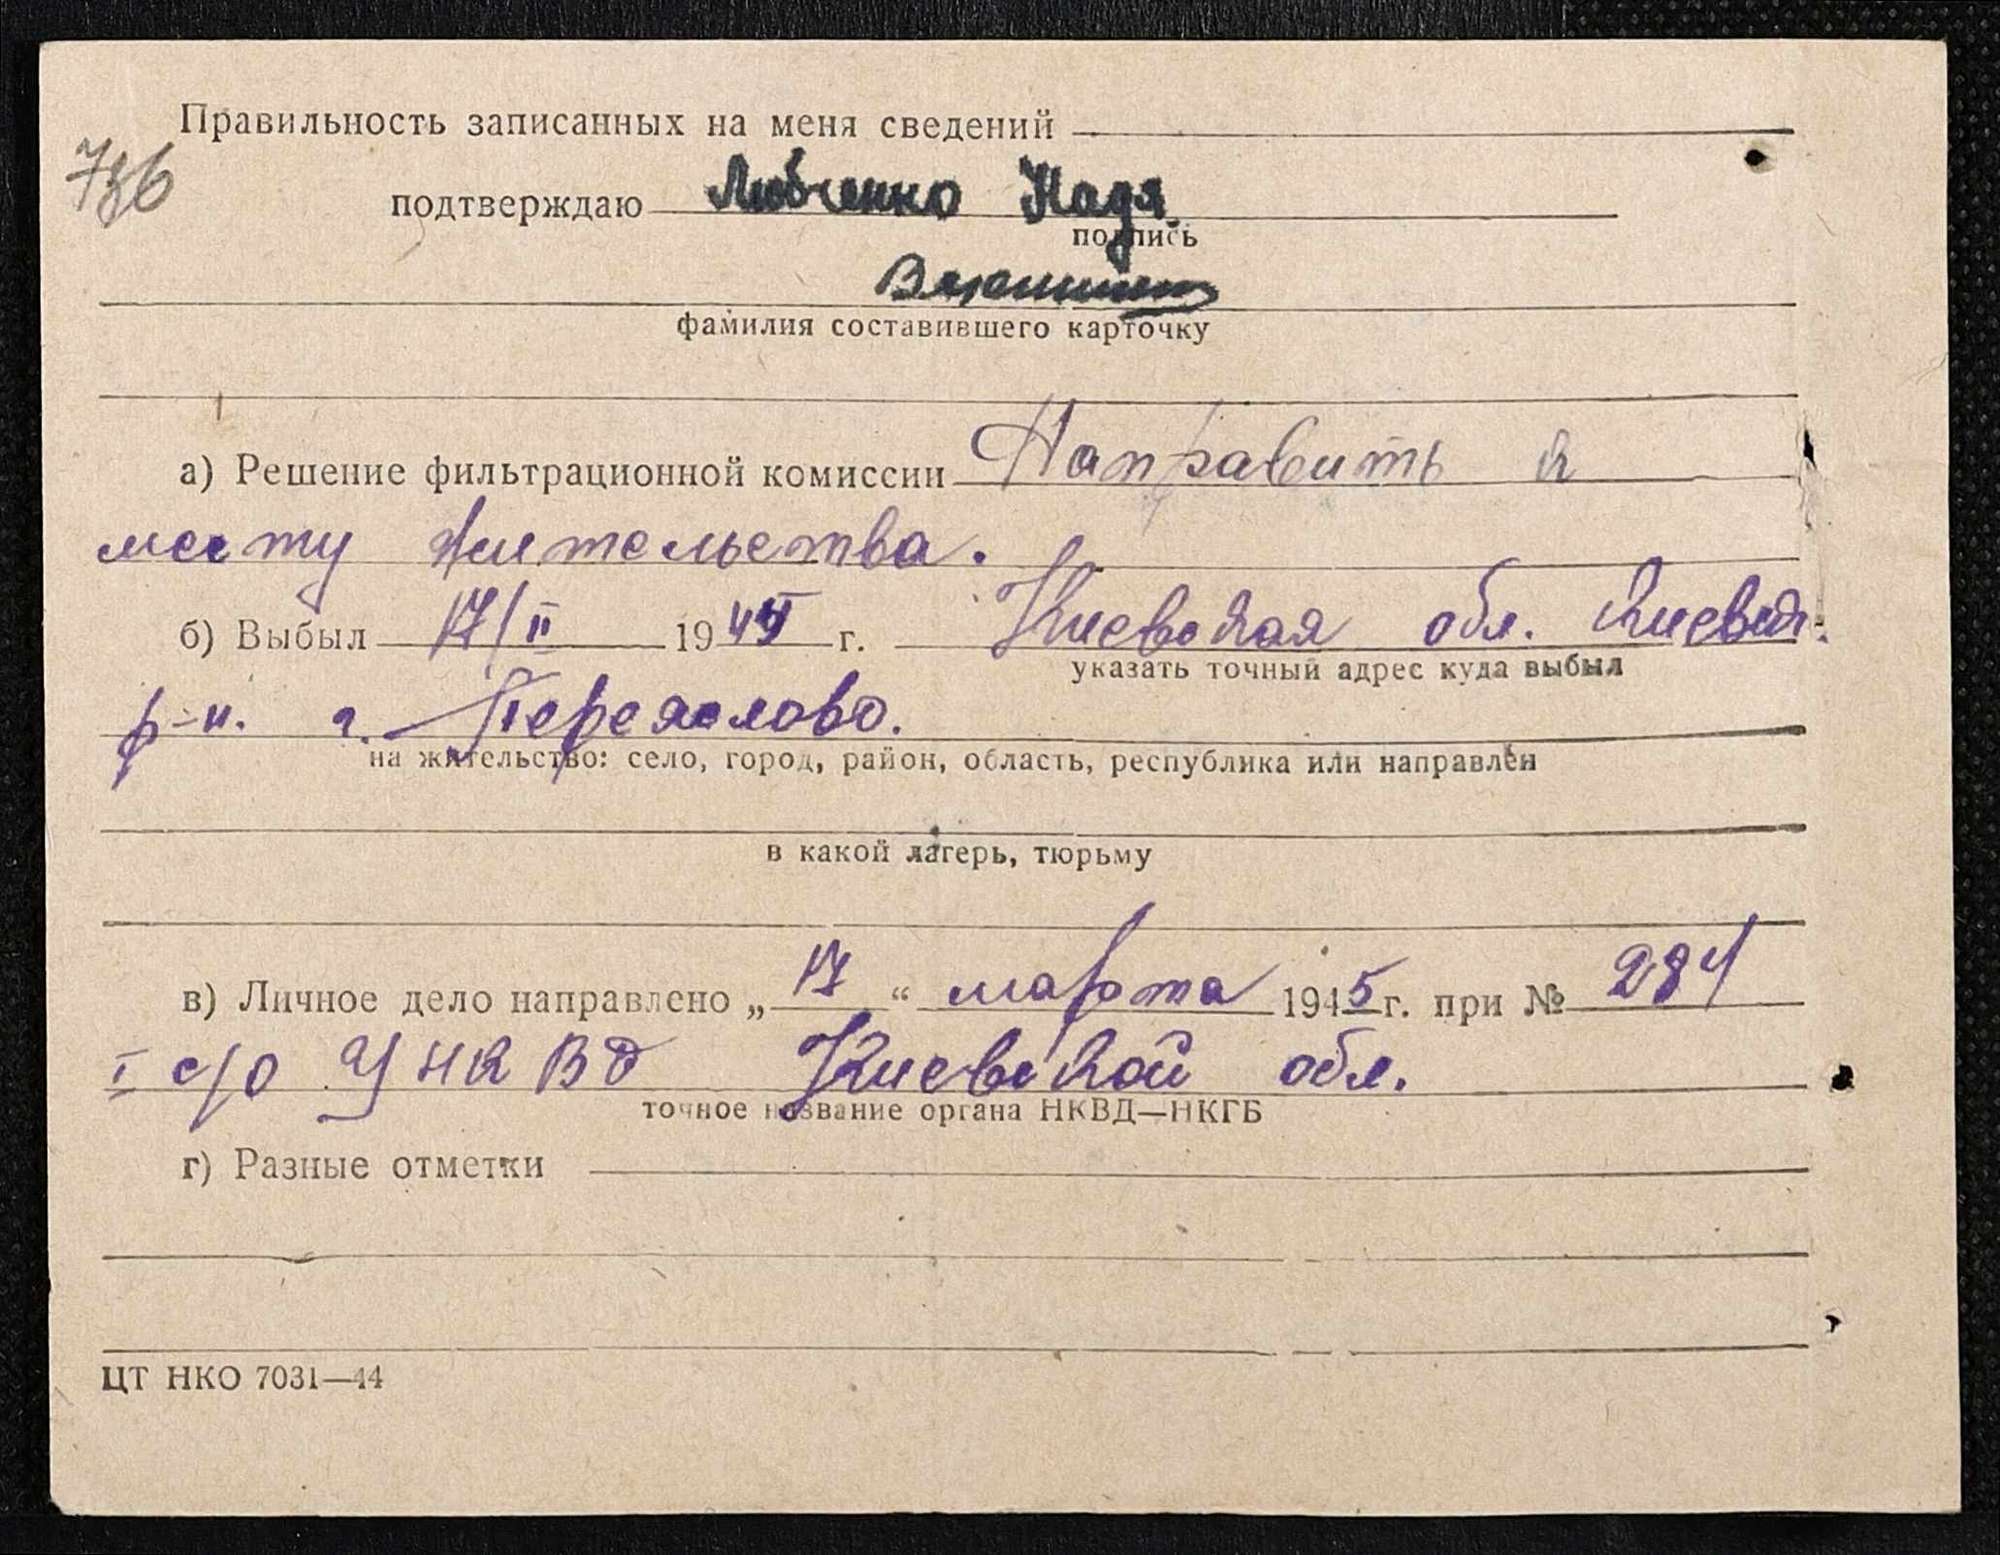 Правильность записанных на меня сведений
736
подтверждаю Любченко Надя
подпись
фамилия составившего карточку
а) Решение фильтрационной комиссии Направить к
месту жительства.
б) Выбыл 17/II 1945 г. Киевская обл. Киевск.
указать точный адрес куда выбыл
р-н. г. Переяслово.
на жительство: село, город, район, область, республика или направлен
в какой лагерь, тюрьму
в) Личное дело направлено „ 17 “ марта 1945 г. при № 284
I с/о УНКВД Киевской обл.
точное название органа НКВД—НКГБ
г) Разные отметки
ЦТ НКО 7031—44